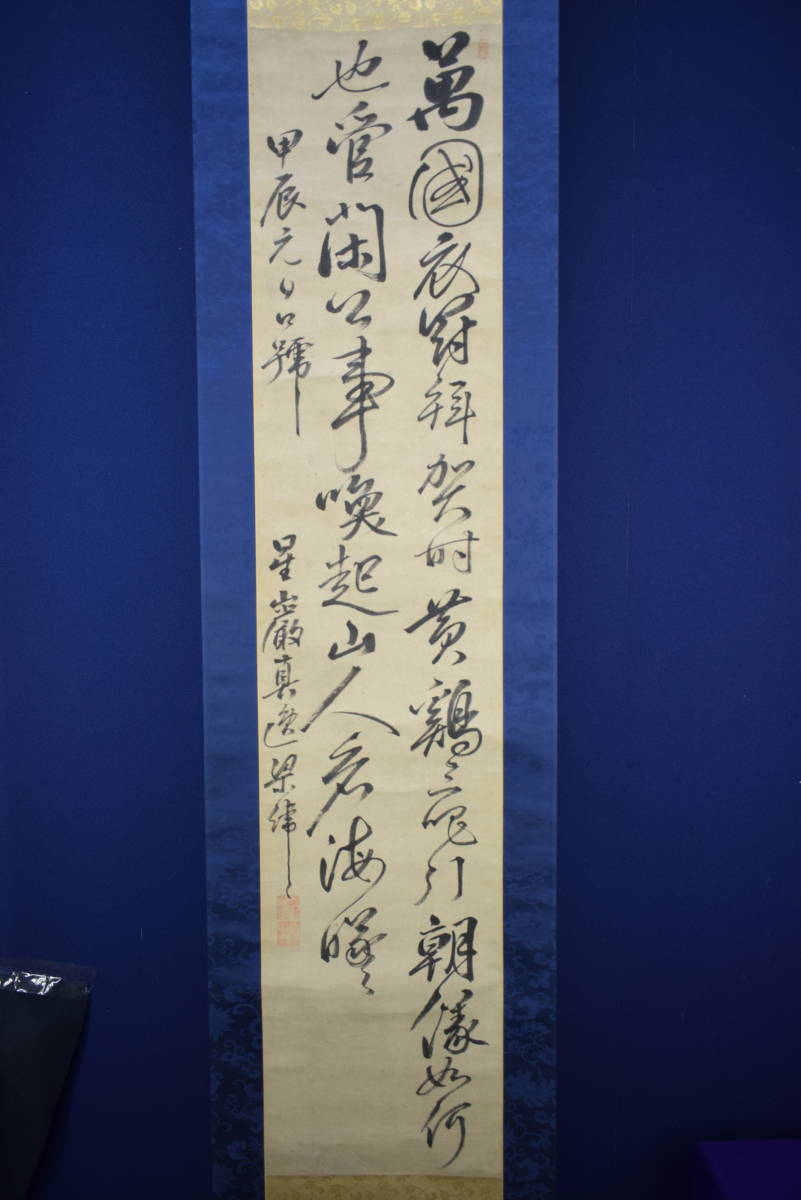 萬國衣冠拜賀時黄鷄三唱引朝儀如何
也管閑公事喚起山人看海曦
甲辰元日口號
星巖真逸梁緯